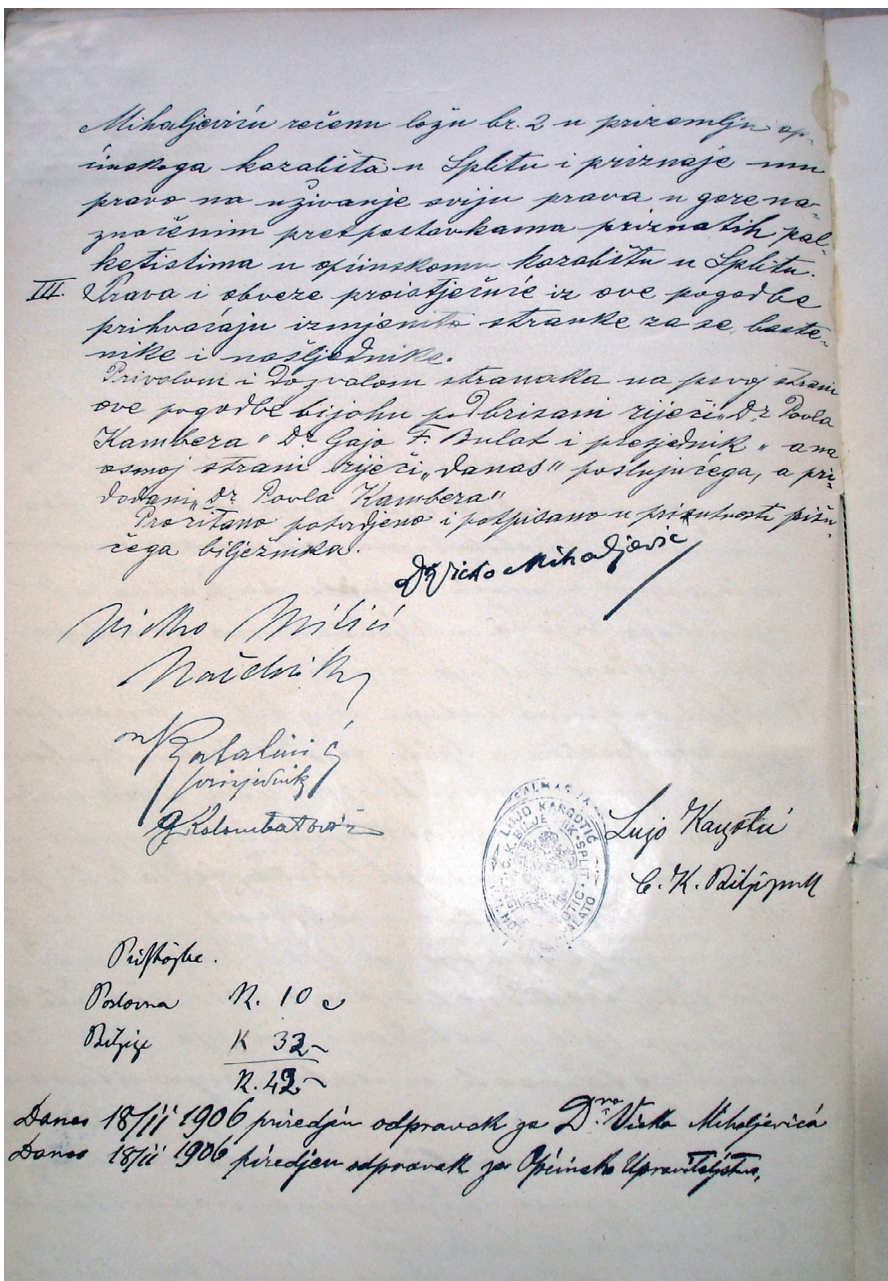 Mihaljeviću rečenu ložu br. 2 u prizemlju op-
ćinskoga kazališta u Splitu i priznaje mu
pravo na uživanje sviju prava u gore na-
značenim pretpostavkama priznatih pal-
ketistima u općinskomu kazalištu u Splitu.
III. Prava i obveze proistječuće iz ove pogodbe
prihvaćaju izmjenito stranke za se, bašte-
nike i našljednike.
Privolom i dozvolom stranaka na prvoj strani
ove pogodbe bijahu podbrisani riječi „Dr. Pavla
Kambera" Dr Gajo F. Bulat i presjednik" a na
osmoj strani riječi „danas" poslujućega, a pri-
dodani „Dr Pavla Kambera"
Pročitano potvrdjeno i potpisano u prisutnosti pišu-
ćega bilježnika.
Dr Vicko Mihaljević
Vicko Milić
Načelnik
Katalinić
prisjednik
G Kolombatović
DALMACIJA
LUJO KARGOTIĆ
C.K. BILJEŽNIK SPLIT
Lujo Kargotić
C. K. Bilježnik
Pristojbe.
Poslovna K. 10
Biljege K 32-
K. 42-
Danas 18/11 1906 priredjen odpravak za Dra Vicka Mihaljevića
Danas 18/11 1906 priredjen odpravak za Općinsko Upraviteljstvo.